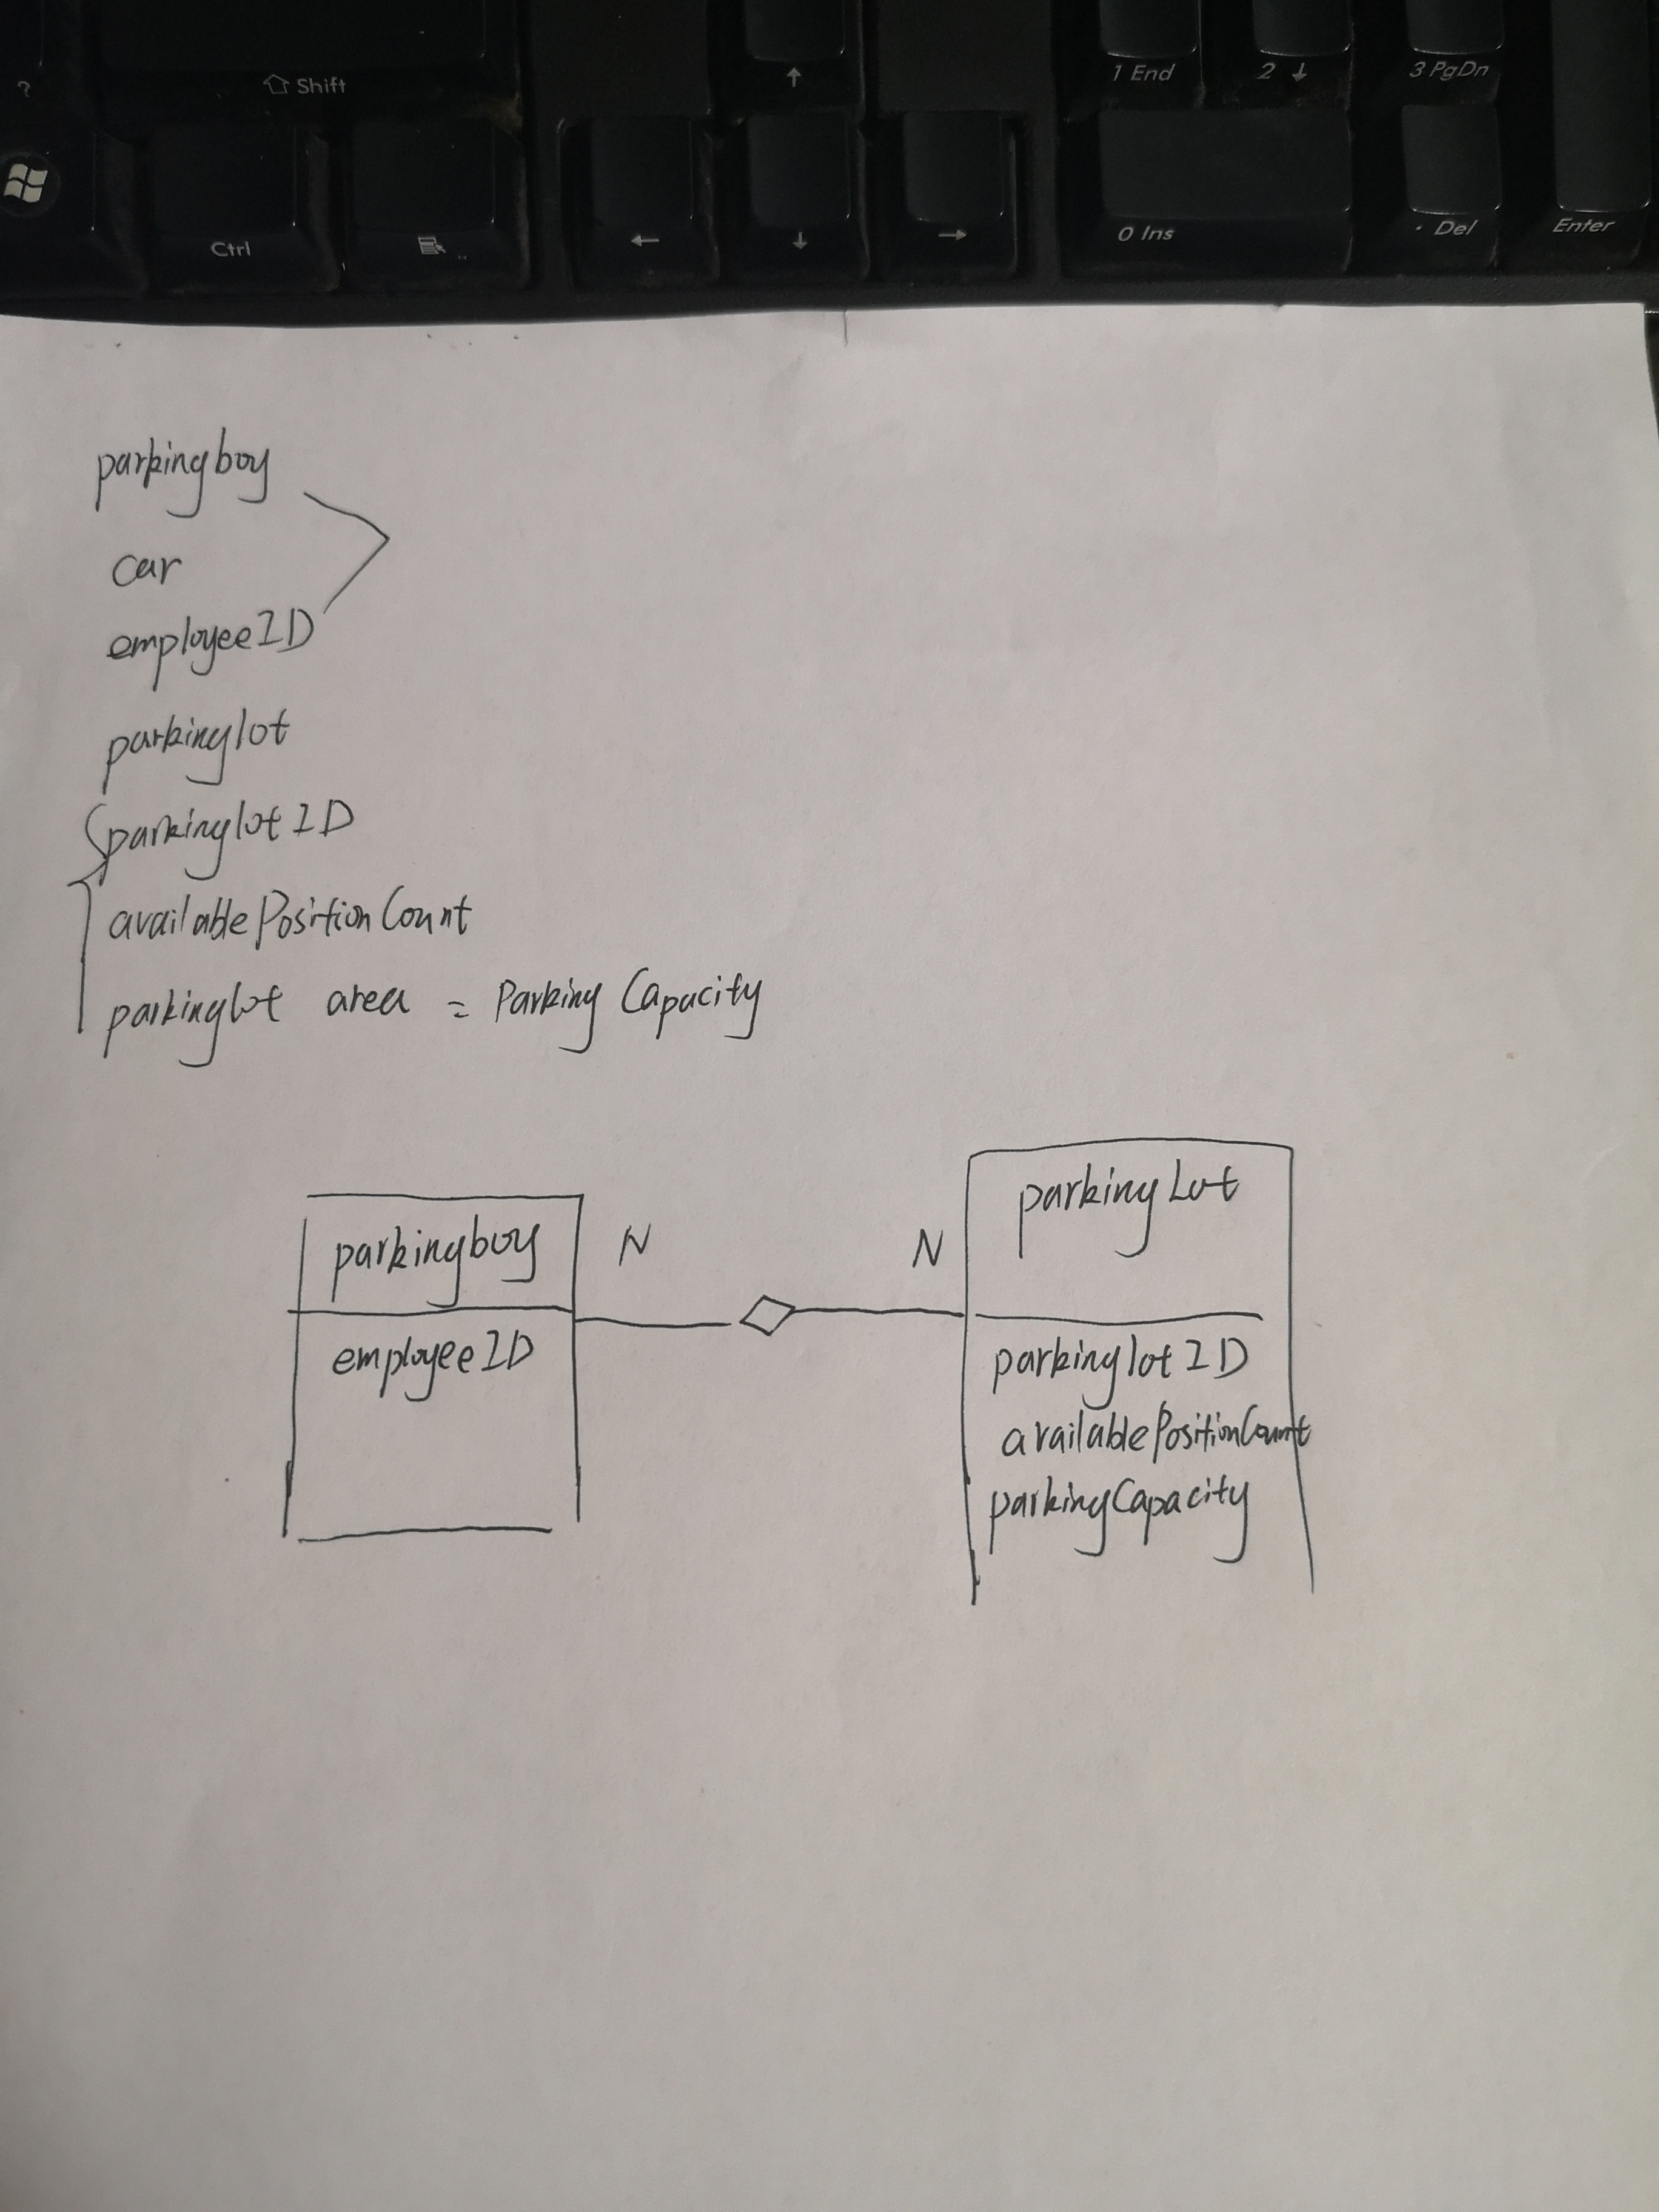 ?
Shift
↑
1 End
2 ↓
3 PgDn
Ctrl
←
↓
→
0 Ins
. Del
Enter
parkingboy
car
employeeID
parkinglot
parkinglotID
availablePositionCount
parkinglot area = Parking Capacity
parkingboy
N
N
parkingLot
employeeID
parkinglotID
availablePositionCount
parkingCapacity